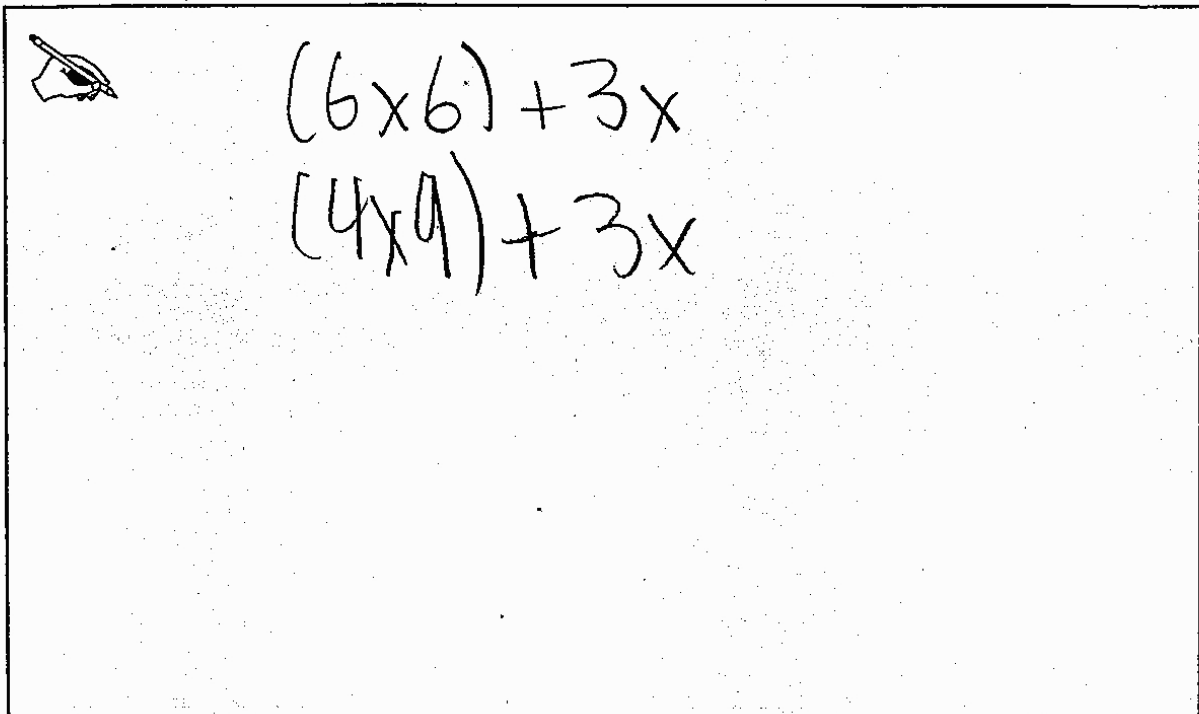 (6x6) + 3x
(4x9) + 3x